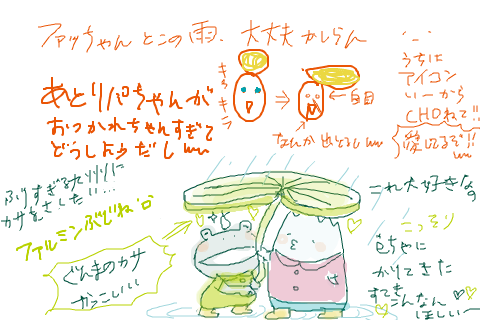 ファッちゃん とこの雨、大丈夫かしらん
あとりパちゃんが
おつかれちゃんすぎて
どうしようだし
きょろ きょろ
←白目
なんか出とるし
うちは
アイコン
いーから
CHOねて!!
愛してるぞ!!
ふりすぎる九州に
カサをさしたい…
ファルミンぶじね
ぐんまのカサ
かっこいい
これ大好きなの
こっそり
色ちゃに
かりてきた
すてき こんなん
ほしいー